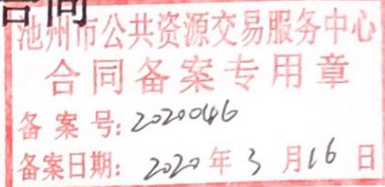 合同
池州市公共资源交易服务中心
合同备案专用章
备案号: 2020046
备案日期: 2020年3月16日